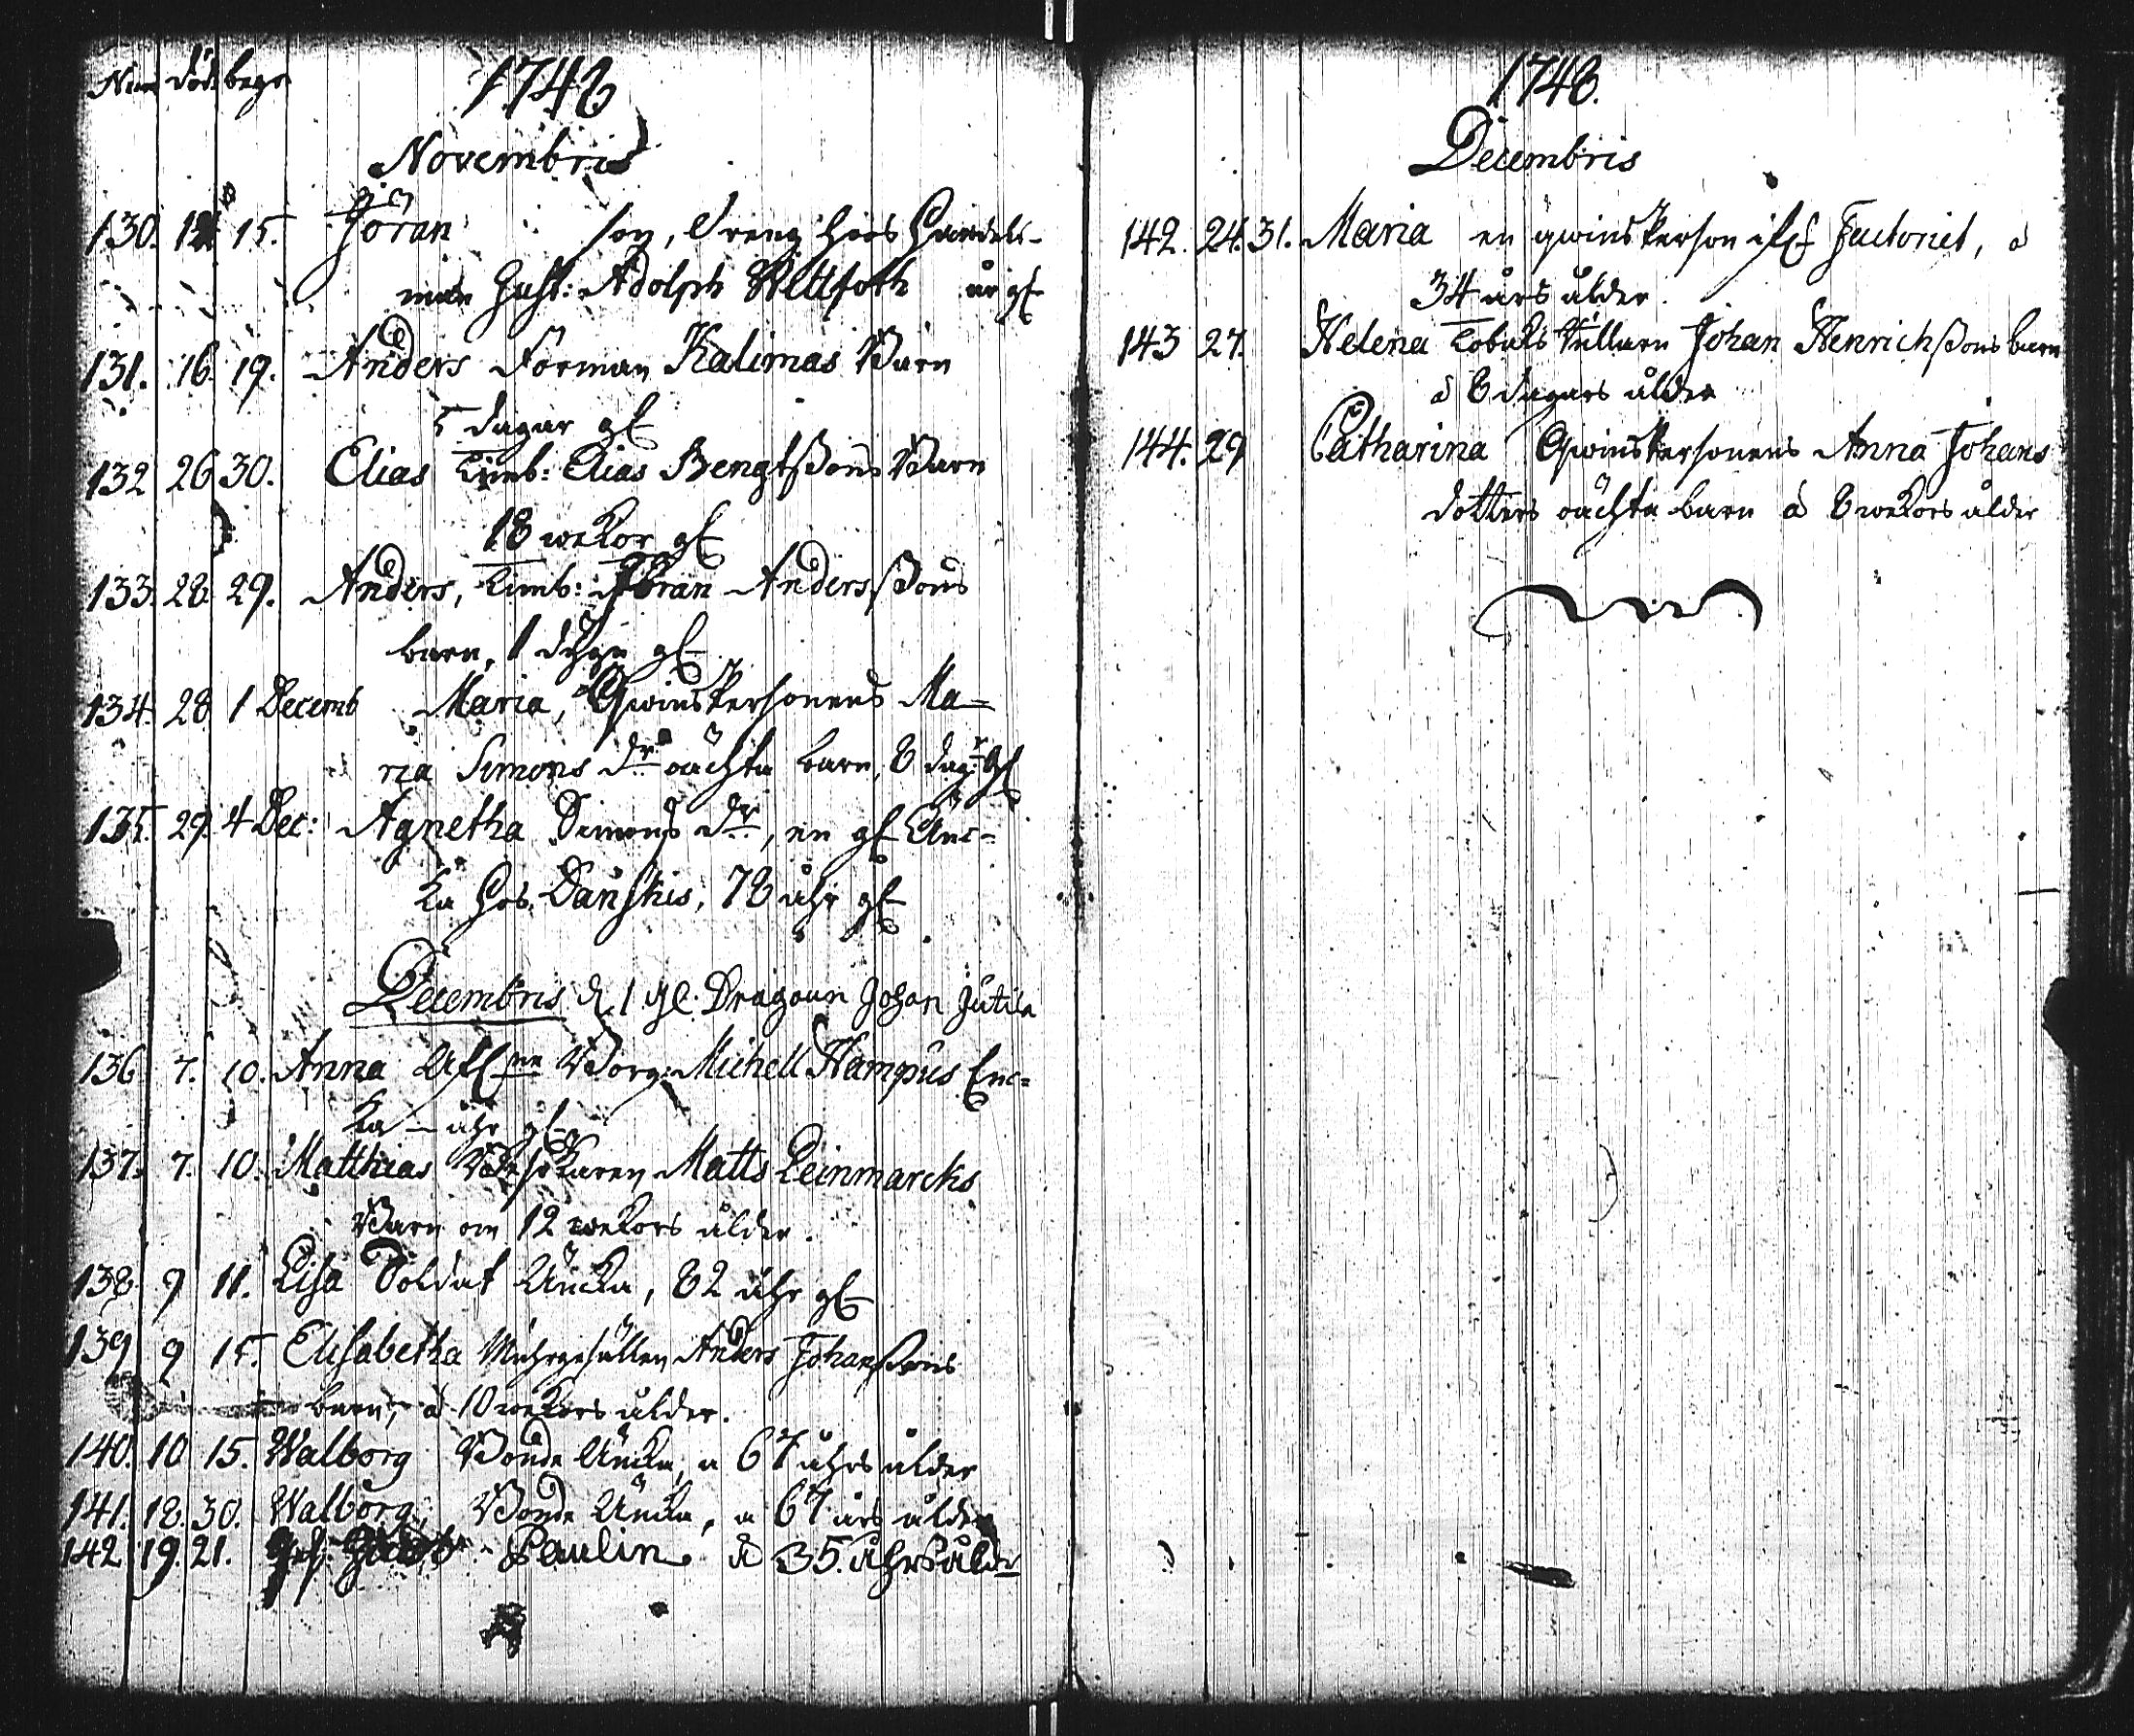 Num död begr
1748
Novembris
130. 12 15. Jöran son, dreng hoos Handels-
man Gust: Adolph Wittfoth år gl
131. 16. 19. Anders Forman Kalimas Barn
5 dagar gl
132 26 30. Elias Timb: Elias Bengtßons Barn
18 wekor gl
133. 28. 29. Anders, Timb: Jöran Andersßons
barn, 1 dygn gl
134. 28 1 Decemb Maria, Qwinspersonens Ma-
ria Simons dr oächta barn, 8 dag: gl
135. 29. 4 Dec: Agnetha Simons dr, en gl Änc-
ka hos Danskis, 78 åhr gl
Decembris d. 1 Dragoun Johan Jutila
136 7. 10. Anna Borg: Michell Hampus Enc-
ka — åhr gl
137. 7. 10. Matthias Matts Leinmarcks
Barn om 12 wekors ålder.
138. 9 11. Lisa Soldat Äncka, 82 åhr gl
139 9 15. Elisabetha Muhrgesällen Anders Johanßons
barn, à 10 wekors ålder.
140. 10 15. Walborg Bonde Äncka, a 67 åhrs ålder
141. 18. 30. Walborg, Bonde Äncka, a 67 års ålder
142 19. 21. Paulin à 35. åhrs ålder
1748.
Decembris
142. 24. 31. Maria en qwinsperson ifrå Factoriet, à
34 års ålder.
143 27. Helena Tobaks Johan Henrichßons barn
à 8 dagars ålder
144. 29 Catharina Qwinspersonens Anna Johans
dotters oächta barn à 8 wekors ålder